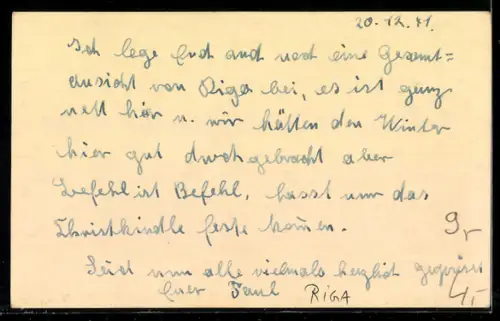 20.12.41.
Ich lege Euch auch noch eine Gesamt=
ansicht von Riga bei, es ist ganz
nett hier u. wir hätten den Winter
hier gut durchgebracht aber
Befehl ist Befehl, lasst nur das
Christkindle feste kommen.
9,-
Seid nun alle vielmals herzlich gegrüsst
Euer Paul
RIGA
4,-